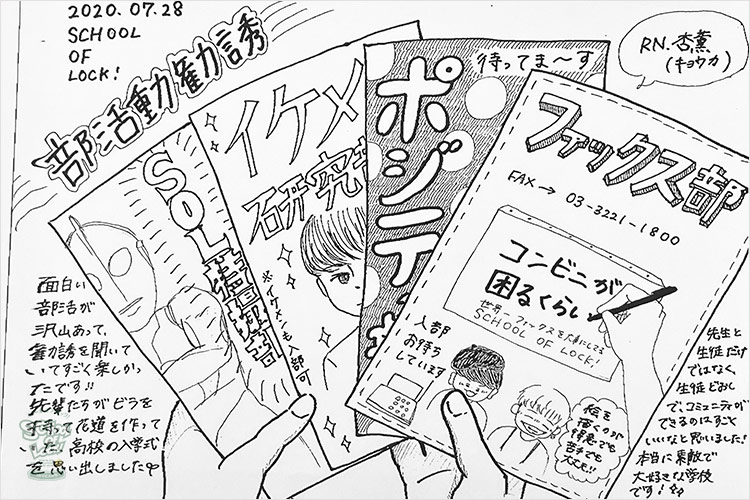 2020.07.28
SCHOOL
OF
LOCK!
部活動勧誘
RN.杏薫
(キョウカ)
SOL
イケメ
研究
※イケメンも入部可
待ってま〜す
ポジテ
ファックス部
FAX→ 03-3221-1800
コンビニが
困るくらい
世界一ファックスを大事にしてる
SCHOOL OF LOCK!
入部
お待ち
しています
絵を
描くのが
得意でも
苦手でも
大丈夫!!
面白い
部活が
沢山あって、
勧誘を聞いて
いてすごく楽しかっ
たです!!
先輩たちがビラを
持って花道を作って
いた、高校の入学式
を思い出しました
先生と
生徒だけ
ではなく、
生徒どおし
で、コミュニティが
できるのはすごく
いいなと思いました!
本当に素敵で
大好きな学校
です!